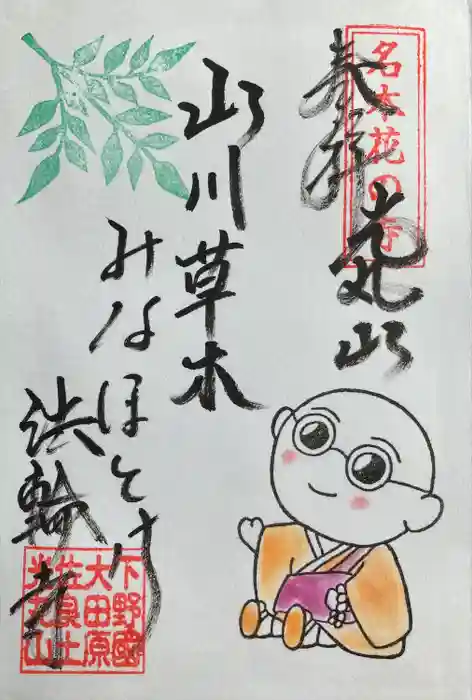 名木花の寺
奉拝
光丸山
山川草木
みなほとけ
法輪寺
下野國
大田原
佐良土
光丸山